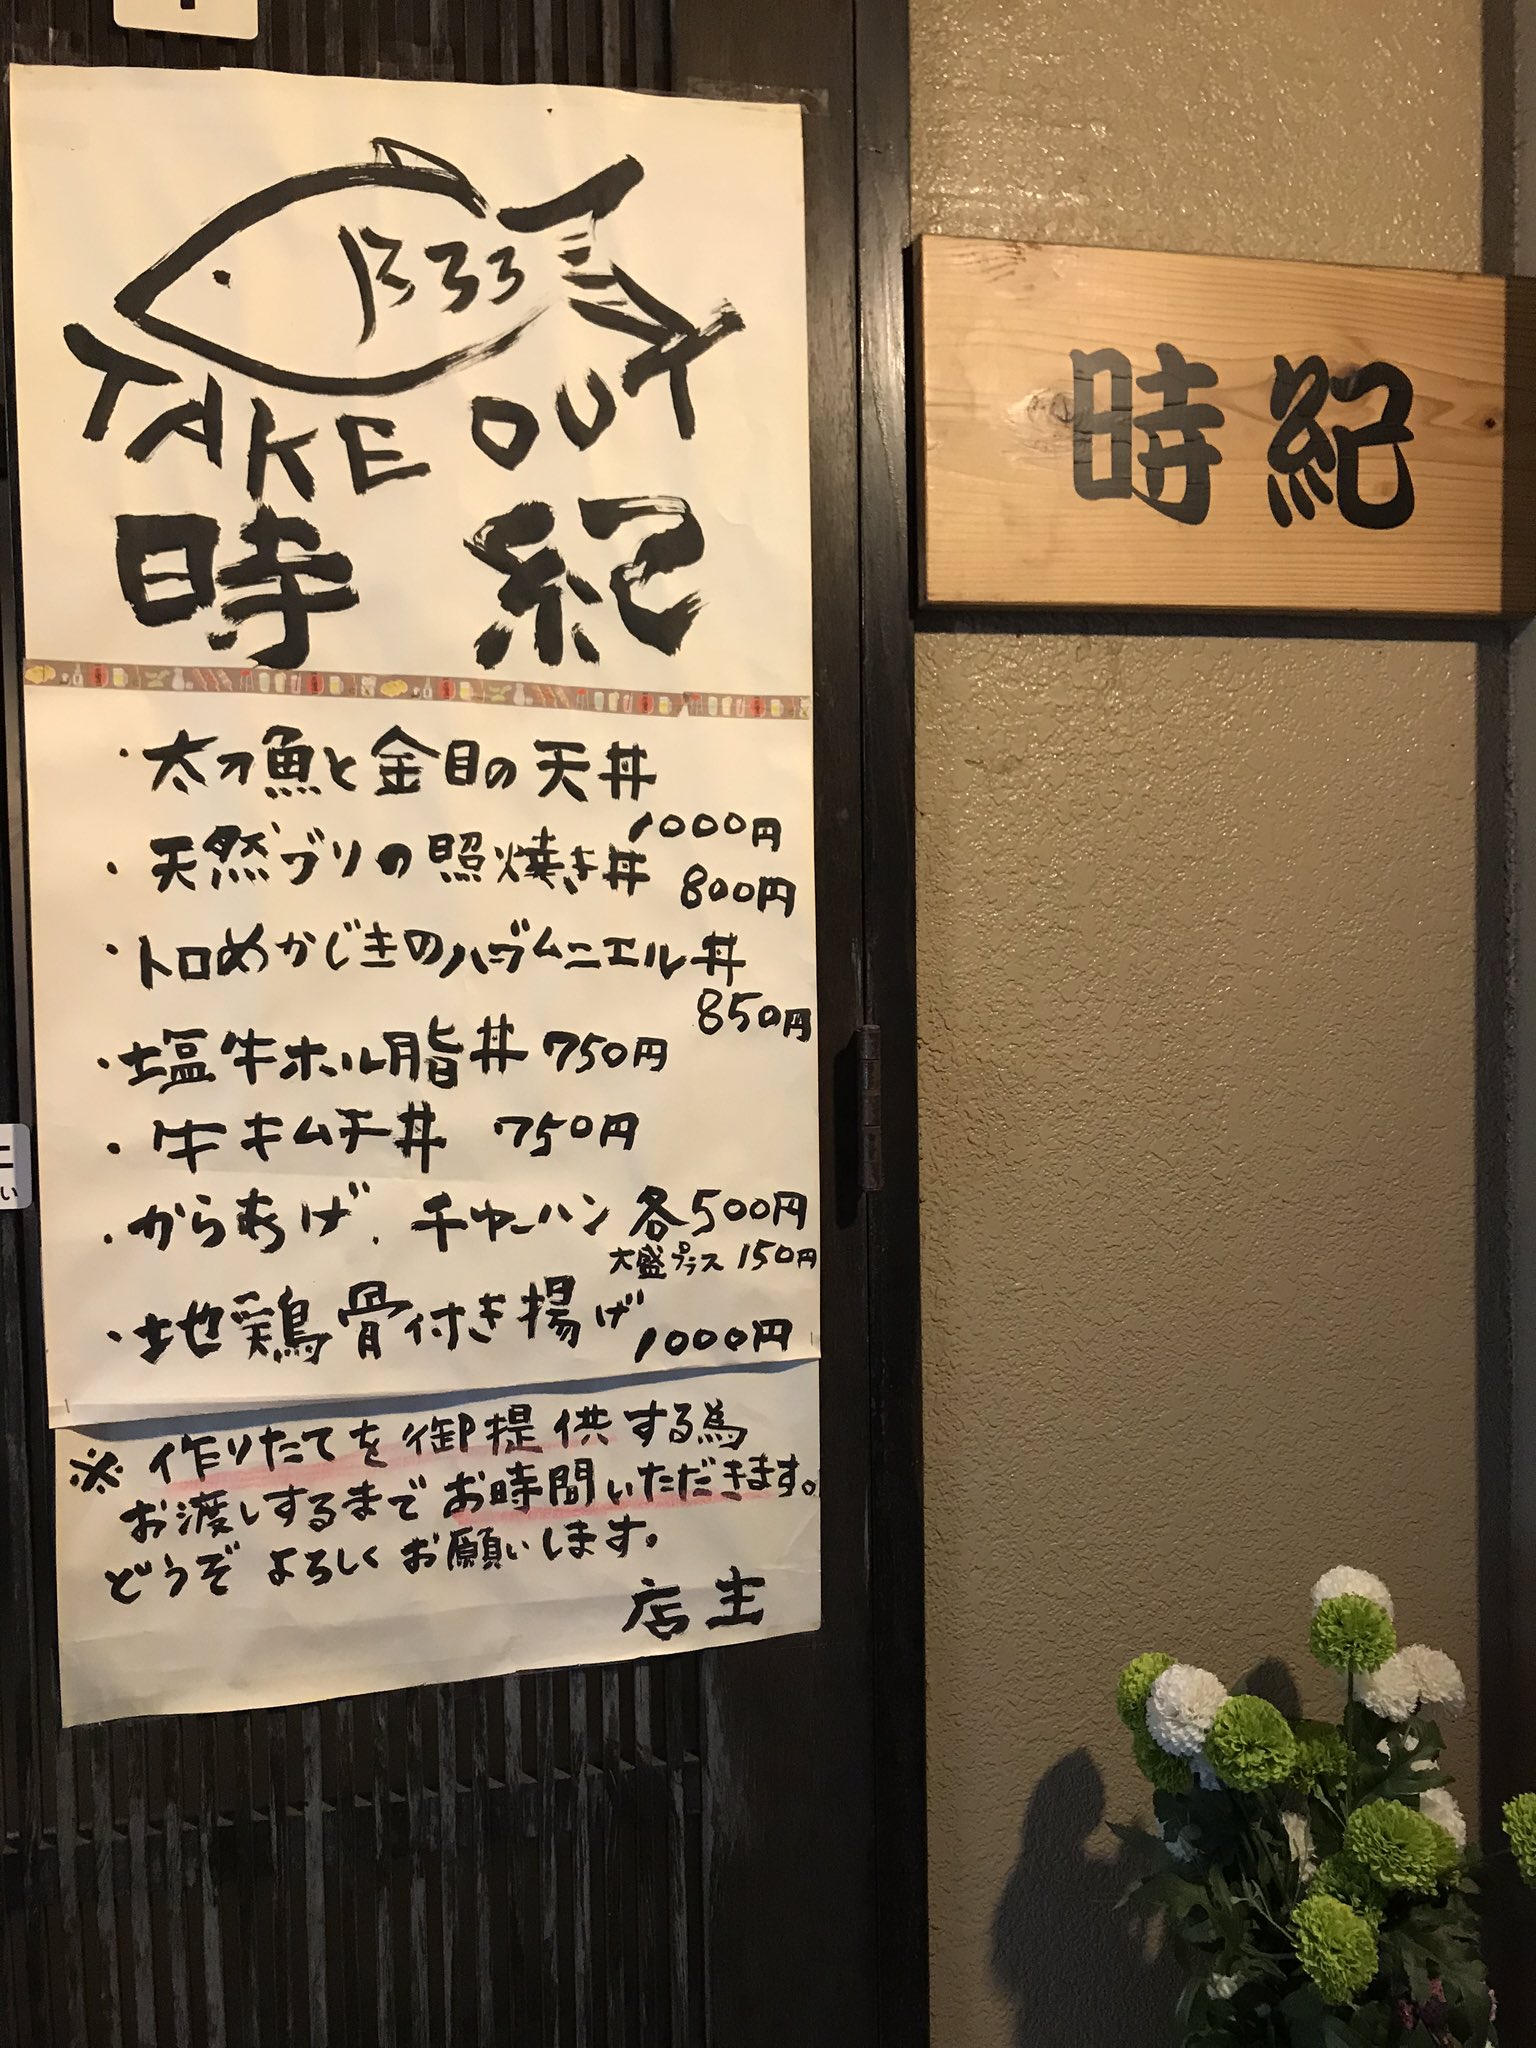 TAKE OUT
時紀
・太刀魚と金目の天丼
1000円
・天然ブリの照焼き丼 800円
・トロめかじきのハーブムニエル丼
850円
・塩牛ホルモン脂丼 750円
・牛キムチ丼 750円
・からあげ、チャーハン 各500円
大盛プラス150円
・地鶏骨付き揚げ 1000円
※作りたてを御提供する為
お渡しするまでお時間いただきます。
どうぞよろしくお願いします。
店主
時紀